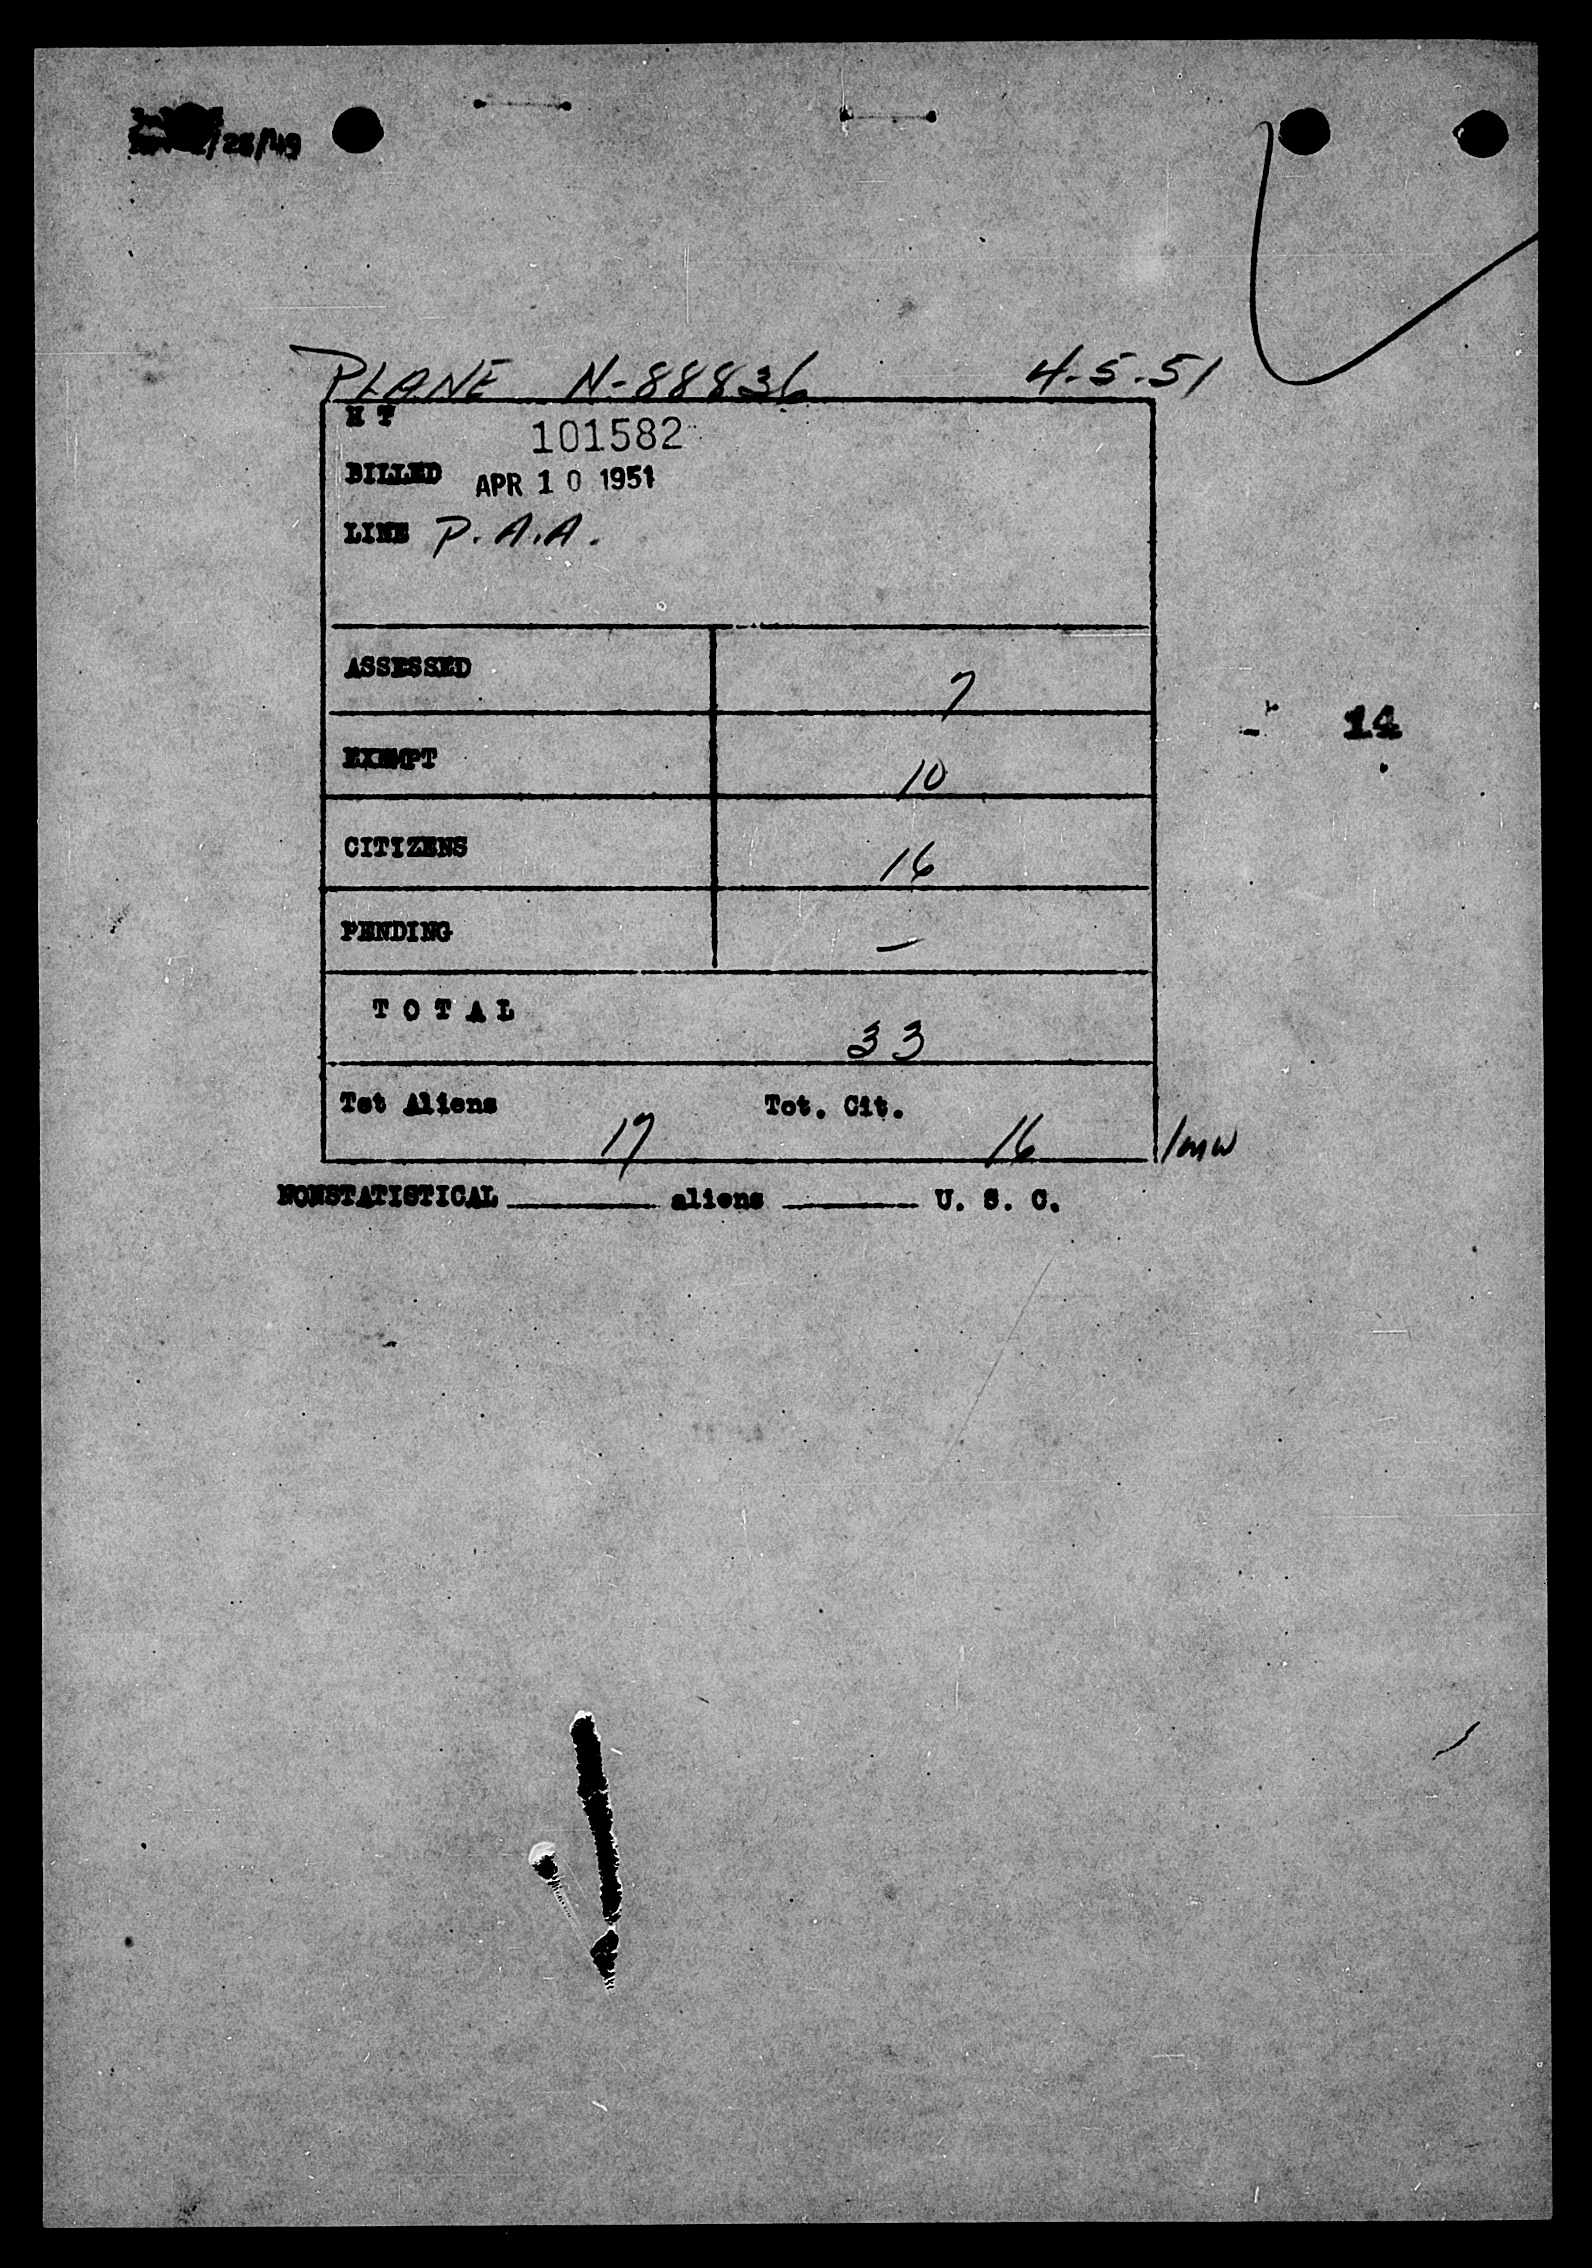 /28/49
PLANE N-88836 4-5-51
H T
101582
BILLED APR 10 1951
LINE P.A.A.
ASSESSED 7
14
EXEMPT 10
CITIZENS 16
PENDING —
T O T A L 33
Tot Aliens 17 Tot. Cit. 16 /mw
NONSTATISTICAL ______ aliens ______ U. S. C.